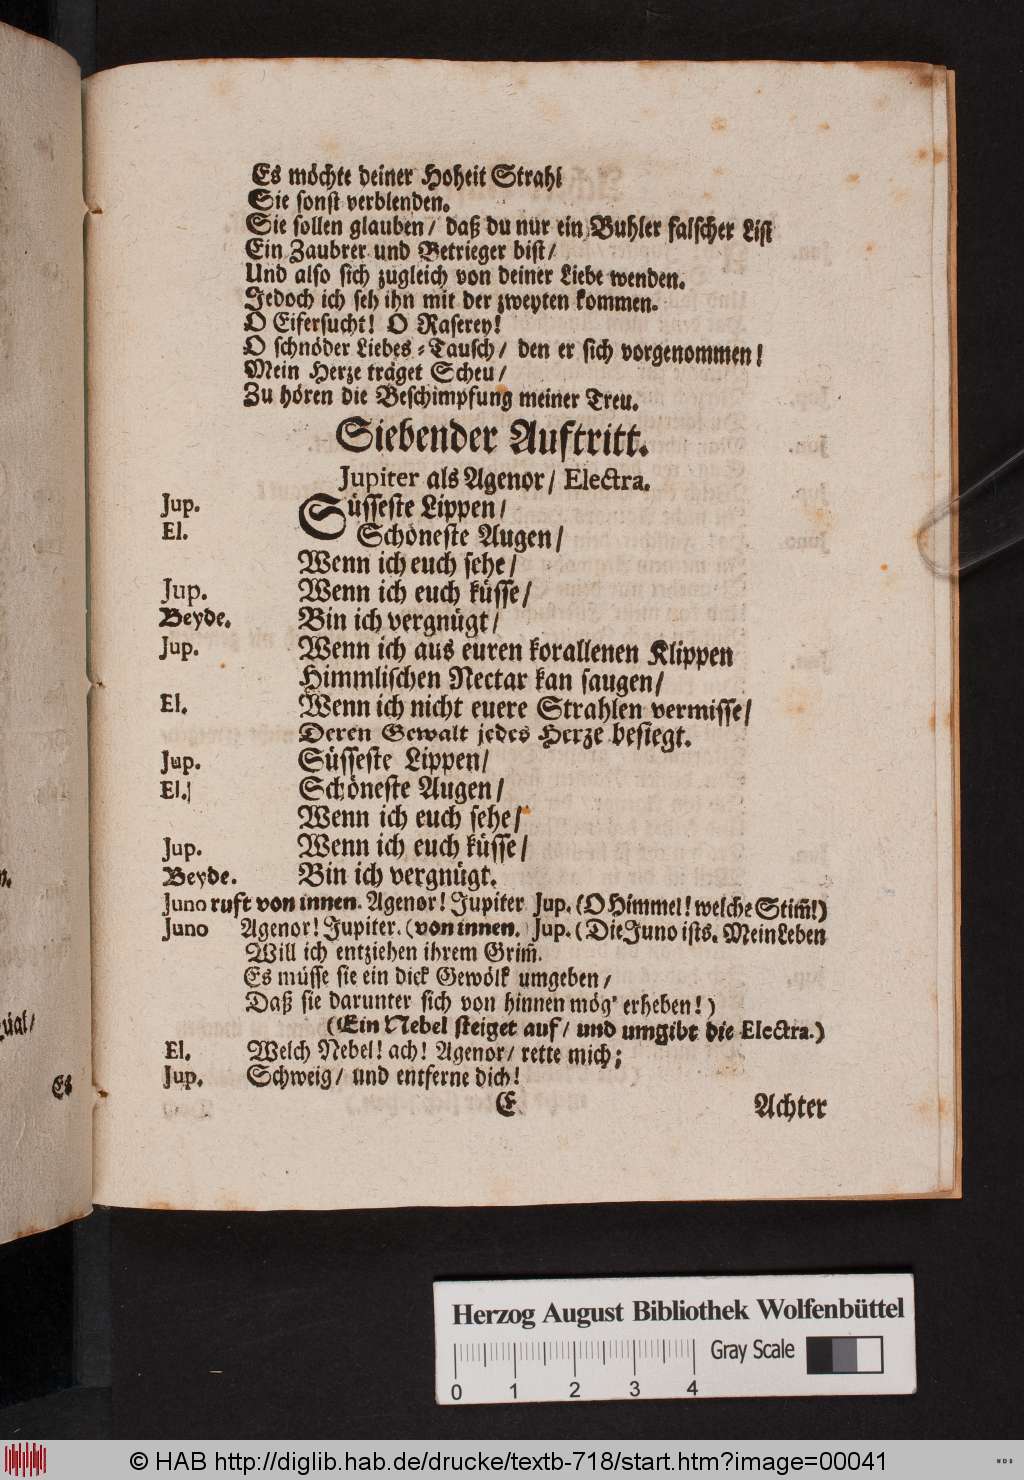 Es möchte deiner Hoheit Strahl
Sie sonst verblenden.
Sie sollen glauben / daß du nur ein Buhler falscher List
Ein Zaubrer und Betrieger bist /
Und also sich zugleich von deiner Liebe wenden.
Jedoch ich seh ihn mit der zweyten kommen.
O Eifersucht! O Raserey!
O schnöder Liebes-Tausch / den er sich vorgenommen!
Mein Herze träget Scheu /
Zu hören die Beschimpfung meiner Treu.
Siebender Auftritt.
Jupiter als Agenor / Electra.
Jup. Süsseste Lippen /
El. Schöneste Augen /
Wenn ich euch sehe /
Jup. Wenn ich euch küsse /
Beyde. Bin ich vergnügt /
Jup. Wenn ich aus euren korallenen Klippen
Himmlischen Nectar kan saugen /
El. Wenn ich nicht euere Strahlen vermisse /
Deren Gewalt jedes Herze besiegt.
Jup. Süsseste Lippen /
El. Schöneste Augen /
Wenn ich euch sehe /
Jup. Wenn ich euch küsse /
Beyde. Bin ich vergnügt.
Juno ruft von innen. Agenor! Jupiter Jup. (O Himmel! welche Stim̃!)
Juno Agenor! Jupiter. (von innen. Jup. (Die Juno ists. Mein Leben
Will ich entziehen ihrem Grim̃.
Es müsse sie ein dick Gewölk umgeben /
Daß sie darunter sich von hinnen mög' erheben!)
(Ein Nebel steiget auf / und umgibt die Electra.)
El. Welch Nebel! ach! Agenor / rette mich;
Jup. Schweig / und entferne dich!
E Achter
Es
Herzog August Bibliothek Wolfenbüttel
Gray Scale
0 1 2 3 4
© HAB http://diglib.hab.de/drucke/textb-718/start.htm?image=00041